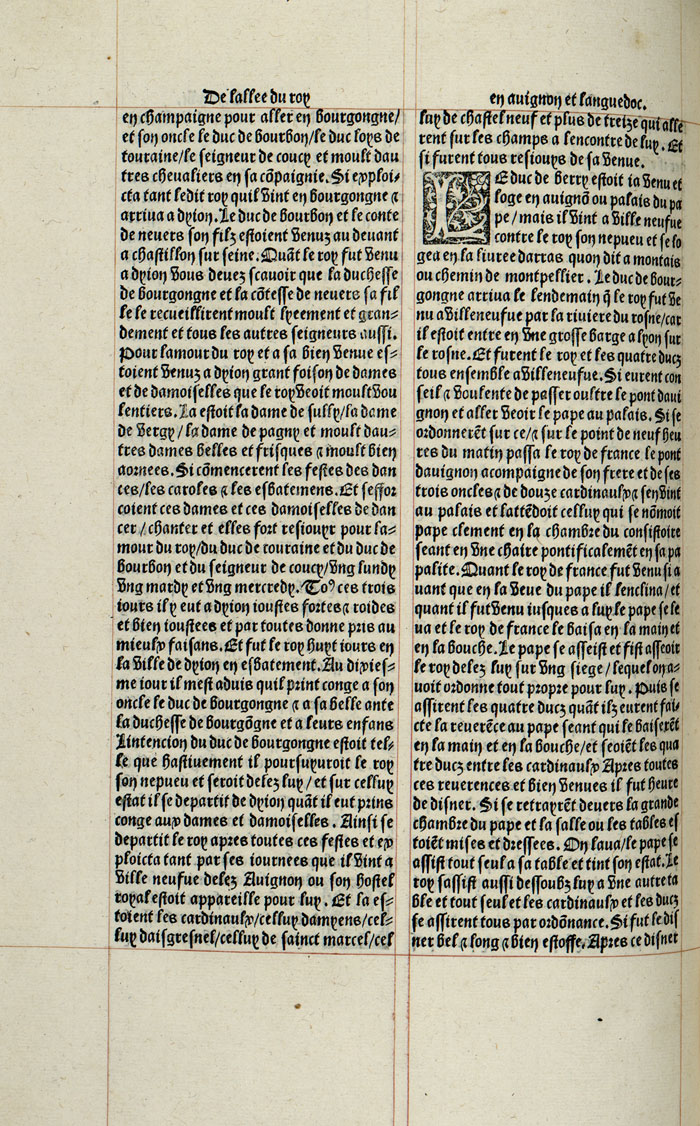 De lallee du roy
en champaigne pour aller en bourgongne/
et son oncle le duc de bourbon/le duc loys de
touraine/le seigneur de coucy et moult dau
tres chevaliers en sa cōpaignie. Si exploi-
cta tant ledit roy quil vint en bourgongne ⁊
arriua a dyion. Le duc de bourbon et le conte
de neuers son filz estoient venuz au deuant
a chastillon sur seine. Quāt le roy fut venu
a dyion vous deuez scauoir que la duchesse
de bourgongne et la cōtesse de neuers sa fil
le le recueillirent moult lyeement et gran-
dement et tous les autres seigneurs aussi.
Pour lamour du roy et a sa bien venue es-
toient venuz a dyion grant foison de dames
et de damoiselles que le roy veoit moult vou
lentiers. La estoit la dame de sully/la dame
de vergy/la dame de pagny et moult dau-
tres dames belles et frisques ⁊ moult bien
aornees. Si cōmencerent les festes des dan
ces/les caroles ⁊ les esbatemens. Et seffor
coient ces dames et ces damoiselles de dan
cer/chanter et elles fort resiouyr pour la-
mour du roy/du duc de touraine et du duc de
bourbon et du seigneur de coucy/vng lundy
vng mardy et vng mercredy. Toꝰ ces trois
iours il y eut a dyion ioustes fortes ⁊ roides
et bien ioustees et par toutes donne pris au
mieulx faisans. Et fut le roy huyt iours en
la ville de dyion en esbatement. Au dixies-
me iour il mest aduis quil print conge a son
oncle le duc de bourgongne ⁊ a sa belle ante
la duchesse de bourgōgne et a leurs enfans
Lintencion du duc de bourgongne estoit tel-
le que hastiuement il poursuyuroit le roy
son nepueu et seroit delez luy/et sur celluy
estat il se departit de dyion quāt il eut prins
conge aux dames et damoiselles. Ainsi se
departit le roy apres toutes ces festes et ex
ploicta tant par ses iournees que il vint a
ville neufue delez Auignon ou son hostel
royal estoit appareille pour luy. Et la es-
toient les cardinaulx/celluy damyens/cel-
luy daisgresnel/celluy de sainct marcel/cel
en auignon et languedoc.
luy de chastel neuf et plus de treize qui alle
rent sur les champs a lencontre de luy. Et
si furent tous resiouys de sa venue.
LE duc de berry estoit ia venu et
loge en auignō ou palais du pa
pe/mais il vint a ville neufue
contre le roy son nepueu et se lo
gea en la liuree darras quon dit a montais
ou chemin de montpellier. Le duc de bour-
gongne arriua le lendemain q̄ le roy fut ve
nu a villeneufue par la riuiere du rosne/car
il estoit entre en vne grosse barge a lyon sur
le rosne. Et furent le roy et les quatre ducz
tous ensemble a villeneufue. Si eurent con
seil ⁊ voulente de passer oultre le pont daui
gnon et aller veoir le pape au palais. Si se
ordonnerēt sur ce/⁊ sur le point de neuf heu
res du matin passa le roy de france le pont
dauignon acompaigne de son frere et de ses
trois oncles ⁊ de douze cardinaulx ⁊ sen vint
au palais et lattēdoit celluy qui se nōmoit
pape clement en la chambre du consistoire
seant en vne chaire pontificalemēt en sa pa
palite. Quant le roy de france fut venu si a
uant que en la veue du pape il lenclina/et
quant il fut venu iusques a luy le pape se le
ua et le roy de france le baisa en la main et
en la bouche. Le pape se asseist et fist asseoir
le roy delez luy sur vng siege/lequel on a-
uoit ordonne tout propre pour luy. Puis se
assirent les quatre ducz quāt ilz eurent fai-
cte la reuerēce au pape seant qui le baiserēt
en la main et en la bouche/et seoiēt les qua
tre ducz entre les cardinaulx Apres toutes
ces reuerences et bien venues il fut heure
de disner. Si se retrayrēt deuers la grande
chambre du pape et la salle ou les tables es
toiēt mises et dressees. On laua/le pape se
assist tout seul a sa table et tint son estat. Le
roy sassist aussi dessoubz luy a vne autre ta
ble et tout seul et les cardinaulx et les ducz
se assirent tous par ordōnance. Si fut le dis
ner bel ⁊ long ⁊ bien estoffe. Apres ce disner